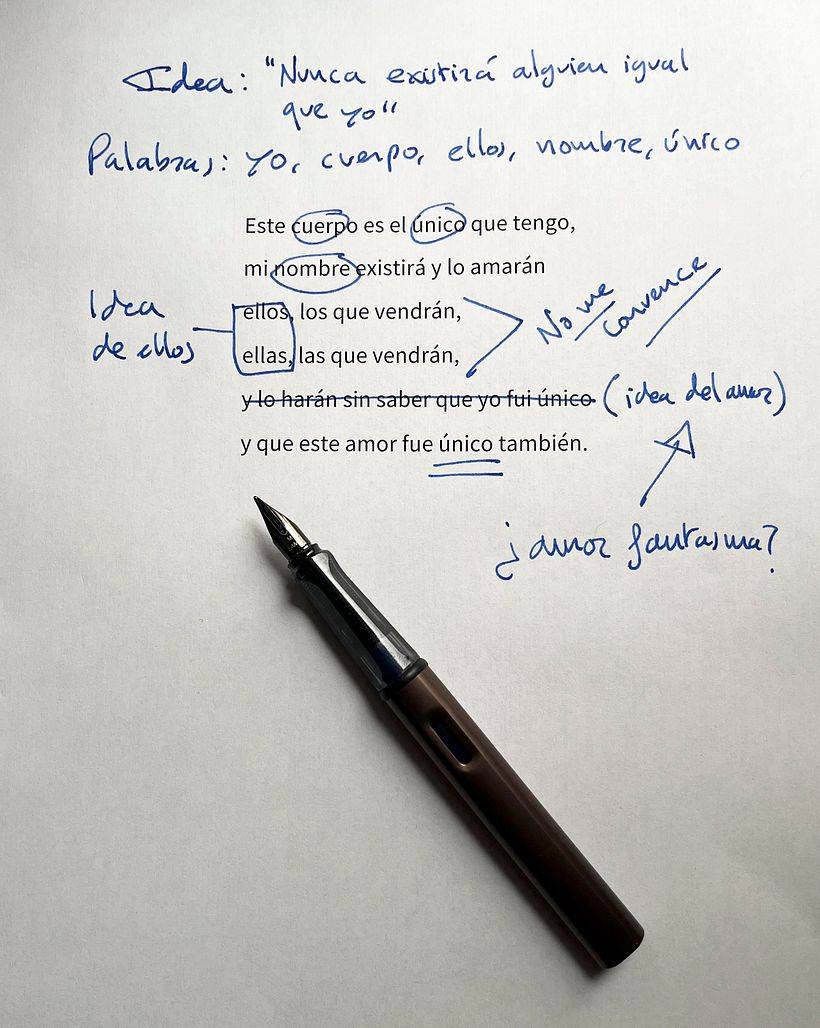 Idea: "Nunca existirá alguien igual
que yo"
Palabras: yo, cuerpo, ellos, nombre, único
Este cuerpo es el único que tengo,
mi nombre existirá y lo amarán
ellos, los que vendrán,
ellas, las que vendrán,
Idea
de ellos
No me
convence
y lo harán sin saber que yo fui único (idea del amor)
y que este amor fue único también.
¿amor fantasma?